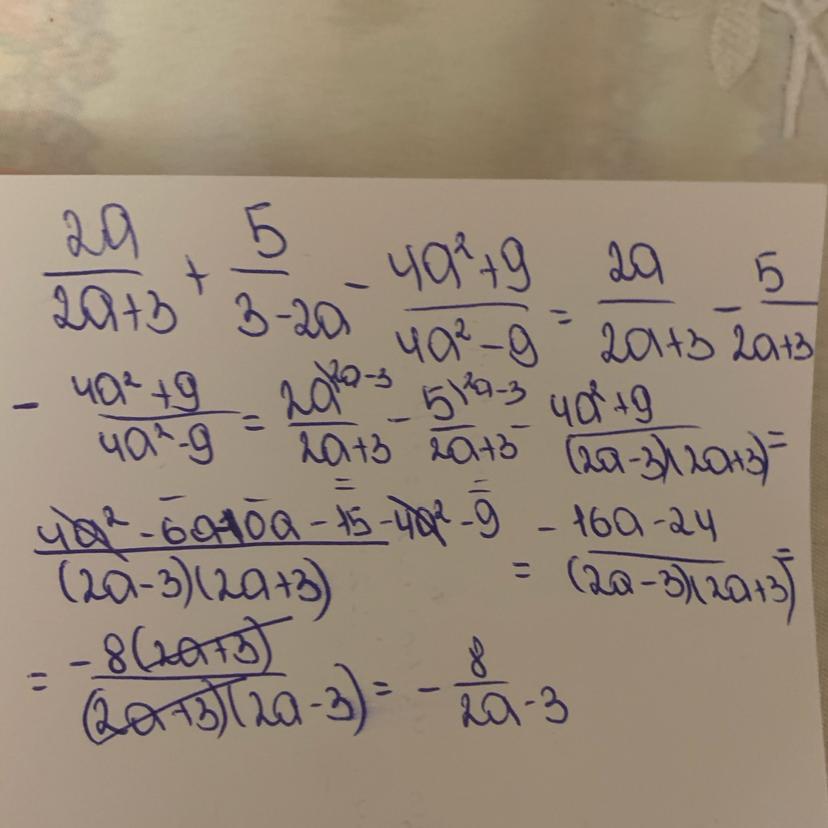 2a/(2a+3) + 5/(3-2a) - (4a²+9)/(4a²-9) = 2a/(2a+3) - 5/(2a+3)
- (4a²+9)/(4a²-9) = 2a^(2a-3)/(2a+3) - 5^(2a-3)/(2a+3) - (4a²+9)/((2a-3)(2a+3)) =
(4a²-6a-10a-15-4a²-9)/((2a-3)(2a+3)) = (-16a-24)/((2a-3)(2a+3)) =
= -8(2a+3)/((2a+3)(2a-3)) = -8/(2a-3)